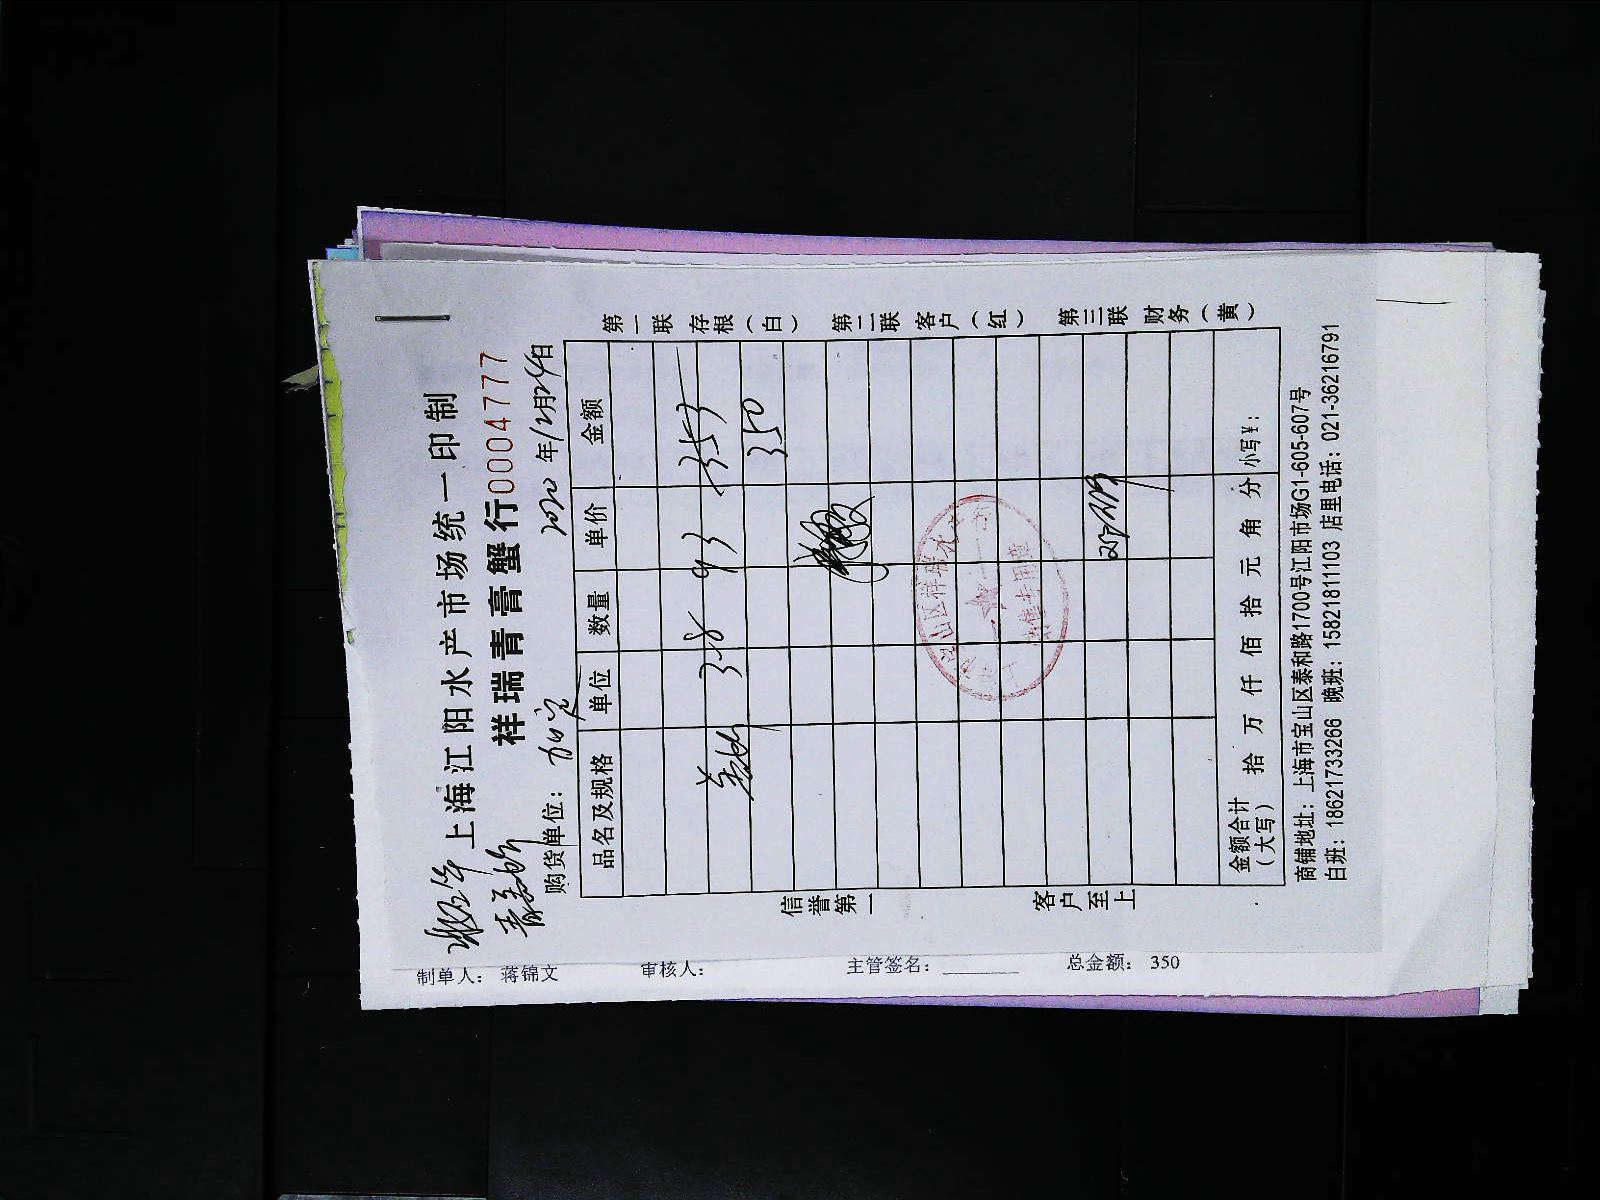 上海江阳水产市场统一印制
祥瑞青膏蟹行0004777
购货单位:
2020年12月24日
品名及规格 单位 数量 单价 金额
3.8 93 353
350
金额合计(大写) 拾 万 仟 佰 拾 元 角 分 小写¥:
商铺地址:上海市宝山区泰和路1700号江阳市场G1-605-607号
白班:18621733266 晚班:15821811103 店里电话:021-36216791
第一联 存根(白) 第二联 客户(红) 第三联 财务(黄)
信誉第一 客户至上
制单人: 蒋锦文 审核人: 主管签名: 总金额: 350